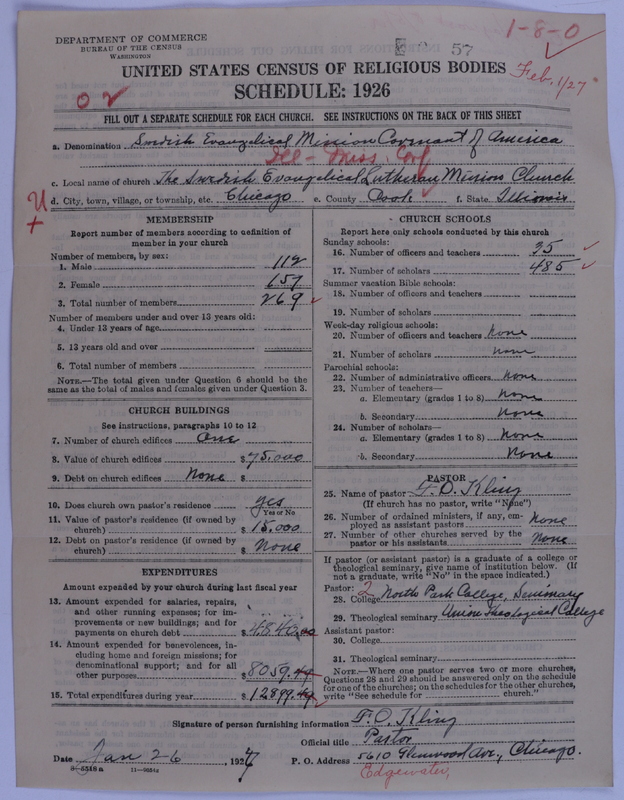 1-8-0
DEPARTMENT OF COMMERCE
BUREAU OF THE CENSUS
WASHINGTON
57
Feb. 1/27
UNITED STATES CENSUS OF RELIGIOUS BODIES
SCHEDULE: 1926
FILL OUT A SEPARATE SCHEDULE FOR EACH CHURCH. SEE INSTRUCTIONS ON THE BACK OF THIS SHEET
a. Denomination Swedish Evangelical Mission Covenant of America
Ill - Miss. Conf
c. Local name of church The Swedish Evangelical Lutheran Mission Church
d. City, town, village, or township, etc. Chicago e. County Cook f. State Illinois
MEMBERSHIP
Report number of members according to definition of
member in your church
Number of members, by sex:
1. Male 112
2. Female 157
3. Total number of members 269
Number of members under and over 13 years old:
4. Under 13 years of age
5. 13 years old and over
6. Total number of members
NOTE.—The total given under Question 6 should be the
same as the total of males and females given under Question 3.
CHURCH BUILDINGS
See instructions, paragraphs 10 to 12
7. Number of church edifices One
8. Value of church edifices $75.000
9. Debt on church edifices None $
10. Does church own pastor's residence yes
Yes or No
11. Value of pastor's residence (if owned by
church) $15.000
12. Debt on pastor's residence (if owned by
church) $ None
EXPENDITURES
Amount expended by your church during last fiscal year
13. Amount expended for salaries, repairs,
and other running expenses; for im-
provements or new buildings; and for
payments on church debt $4840.00
14. Amount expended for benevolences, in-
cluding home and foreign missions; for
denominational support; and for all
other purposes $8059.49
15. Total expenditures during year $12899.49
CHURCH SCHOOLS
Report here only schools conducted by this church
Sunday schools:
16. Number of officers and teachers 35
17. Number of scholars 485
Summer vacation Bible schools:
18. Number of officers and teachers
19. Number of scholars
Week-day religious schools:
20. Number of officers and teachers None
21. Number of scholars None
Parochial schools:
22. Number of administrative officers None
23. Number of teachers—
a. Elementary (grades 1 to 8) None
b. Secondary None
24. Number of scholars—
a. Elementary (grades 1 to 8) None
b. Secondary None
PASTOR
25. Name of pastor F. O. Kling
(If church has no pastor, write "None")
26. Number of ordained ministers, if any, em-
ployed as assistant pastors None
27. Number of other churches served by the
pastor or his assistants None
If pastor (or assistant pastor) is a graduate of a college or
theological seminary, give name of institution below. (If
not a graduate, write "No" in the space indicated.)
Pastor: 2
28. College North Park College, Seminary
29. Theological seminary Union Theological College
Assistant pastor:
30. College
31. Theological seminary
NOTE.—Where one pastor serves two or more churches,
Questions 28 and 29 should be answered only on the schedule
for one of the churches; on the schedules for the other churches,
write "See schedule for church."
Signature of person furnishing information F. O. Kling
Official title Pastor
Date Jan 26 1927 P. O. Address 5610 Glenwood Ave., Chicago.
11—9264 Edgewater